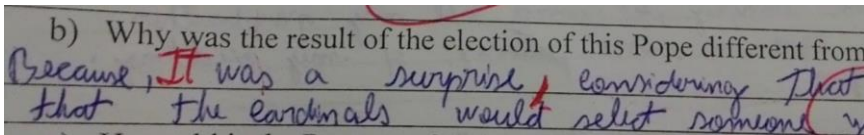 b) Why was the result of the election of this Pope different from
Because, It was a surprise, considering that
that the cardinals would select someone